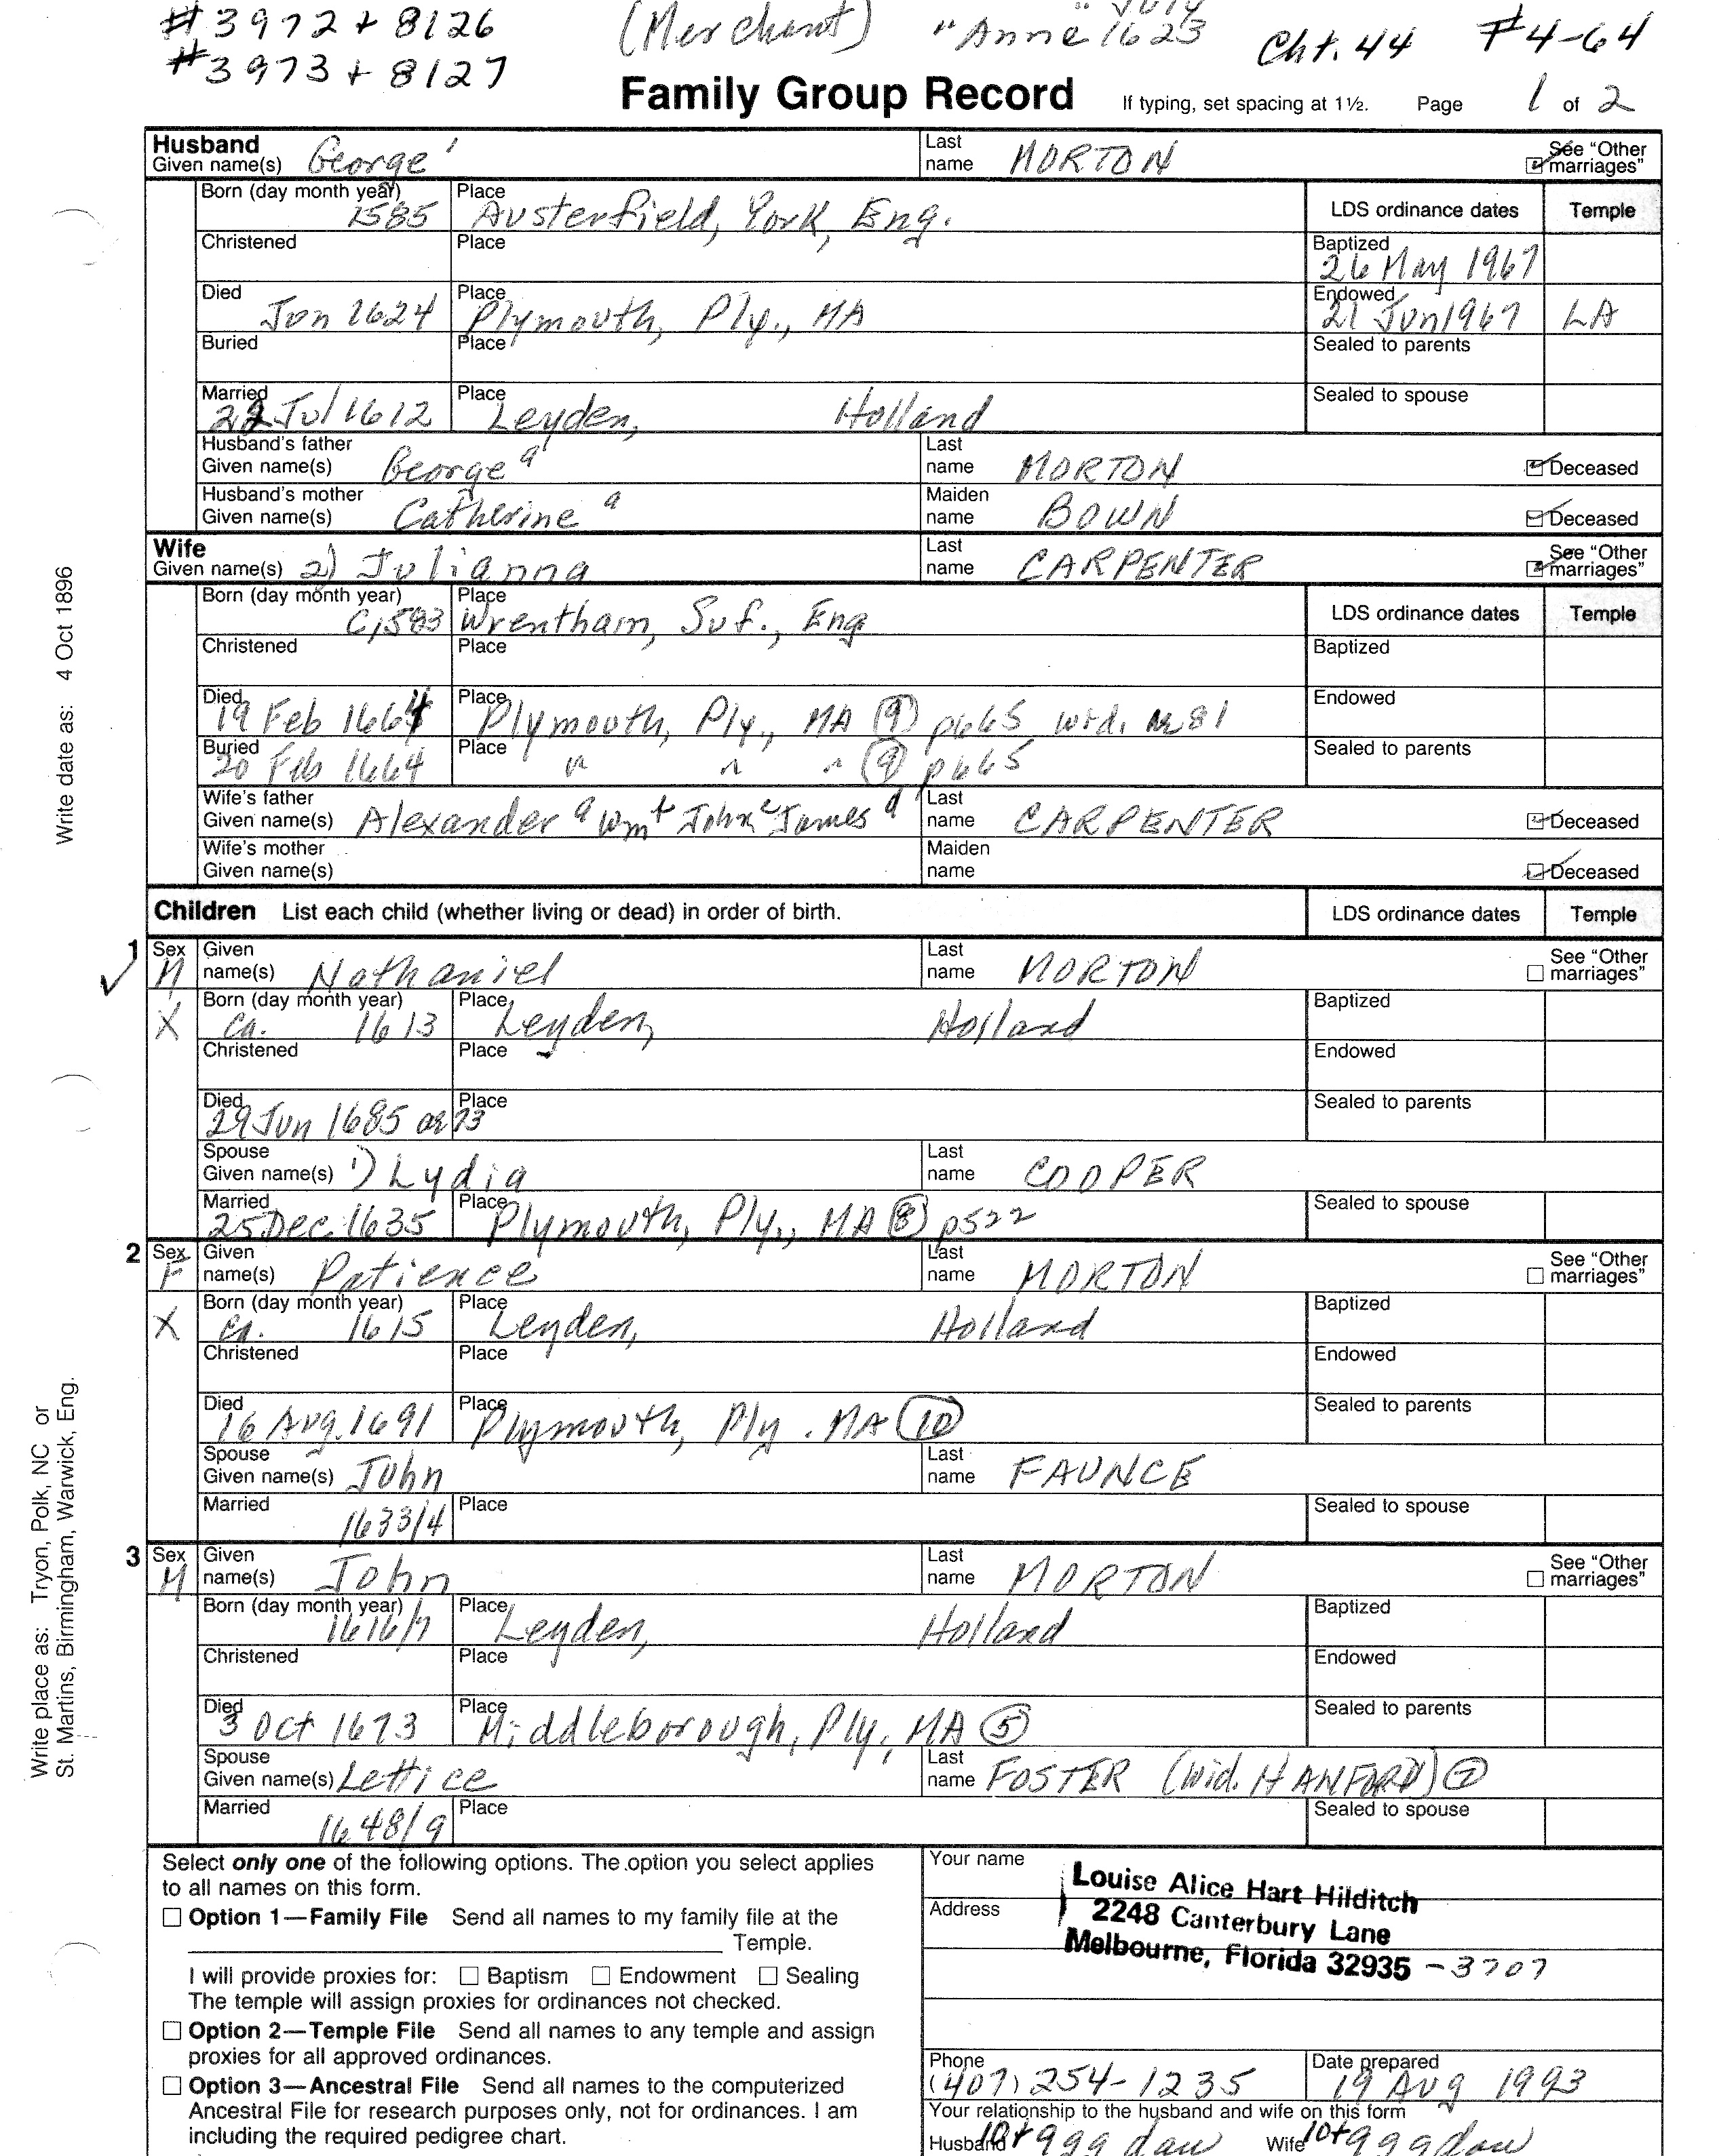 #3972 + 8126 (Merchant) "Anne" 1623 Cht. 44 #4-64
#3973 + 8127
Family Group Record If typing, set spacing at 1½. Page 1 of 2
Husband
Given name(s) George Last name MORTON See "Other marriages"
Born (day month year) 1585 Place Austerfield, York, Eng. LDS ordinance dates Temple
Christened Place Baptized 26 May 1967
Died Jun 1624 Place Plymouth, Ply., MA Endowed 21 Jun 1967 LA
Buried Place Sealed to parents
Married 22 Jul 1612 Place Leyden, Holland Sealed to spouse
Husband's father
Given name(s) George a Last name MORTON Deceased
Husband's mother
Given name(s) Catherine a Maiden name BOWN Deceased
Wife
Given name(s) 2) Julianna Last name CARPENTER See "Other marriages"
Born (day month year) C1583 Place Wrentham, Suf., Eng LDS ordinance dates Temple
Christened Place Baptized
Died 19 Feb 1664 Place Plymouth, Ply., MA (9) p665 81 Endowed
Buried 20 Feb 1664 Place " " " (9) p665 Sealed to parents
Wife's father
Given name(s) Alexander a Wm John c James d Last name CARPENTER Deceased
Wife's mother
Given name(s) Maiden name Deceased
Children List each child (whether living or dead) in order of birth. LDS ordinance dates Temple
1 Sex M Given name(s) Nathaniel Last name MORTON See "Other marriages"
X Born (day month year) Ca. 1613 Place Leyden, Holland Baptized
Christened Place Endowed
Died 29 Jun 1685 or 73 Place Sealed to parents
Spouse
Given name(s) 1) Lydia Last name COOPER
Married 25 Dec. 1635 Place Plymouth, Ply., MA (8) p522 Sealed to spouse
2 Sex F Given name(s) Patience Last name MORTON See "Other marriages"
X Born (day month year) Ca. 1615 Place Leyden, Holland Baptized
Christened Place Endowed
Died 16 Aug. 1691 Place Plymouth, Ply. MA (10) Sealed to parents
Spouse
Given name(s) John Last name FAUNCE
Married 1633/4 Place Sealed to spouse
3 Sex M Given name(s) John Last name MORTON See "Other marriages"
Born (day month year) 1616/7 Place Leyden, Holland Baptized
Christened Place Endowed
Died 3 Oct 1673 Place Middleborough, Ply, MA (5) Sealed to parents
Spouse
Given name(s) Lettice Last name FOSTER (Wid. HANFORD) (7)
Married 1648/9 Place Sealed to spouse
Select only one of the following options. The option you select applies
to all names on this form.
Option 1—Family File Send all names to my family file at the
Temple.
I will provide proxies for: Baptism Endowment Sealing
The temple will assign proxies for ordinances not checked.
Option 2—Temple File Send all names to any temple and assign
proxies for all approved ordinances.
Option 3—Ancestral File Send all names to the computerized
Ancestral File for research purposes only, not for ordinances. I am
including the required pedigree chart.
Your name Louise Alice Hart Hilditch
Address 2248 Canterbury Lane
Melbourne, Florida 32935 -3707
Phone (407) 254-1235 Date prepared 19 Aug 1993
Your relationship to the husband and wife on this form
Husband 10+ggg dau Wife 10+ggg dau
Write date as: 4 Oct 1896
Write place as: Tryon, Polk, NC or
St. Martins, Birmingham, Warwick, Eng.